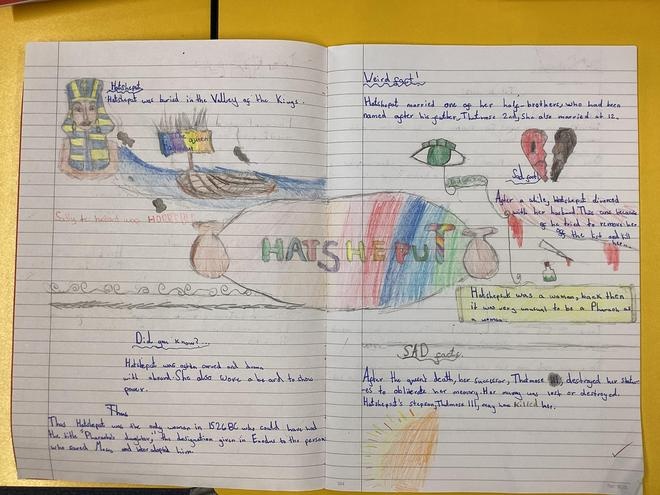 Hatsheput
Hatsheput was buried in the Valley of the Kings.
queen
Silly to husband was HORRIBLE
HATSHEPUT
Did you know?...
Hatsheput was often carved and
with a beard. She also wore a beard to show
power.
Thus
Thus Hatsheput was the only woman in 1526 BC who could have had
the title "Pharaoh's daughter", the designation given in Exodus to the person
who saved Moses and later adopted him.
Weird fact!
Hatsheput married one of her half-brothers, who had been
named after his father, Thutmose 2nd, She also married at 12.
Sad fact
After a while, Hatsheput divorced
with her husband. This was because
he tried to remove her
the and kill
her...
Hatsheput was a woman, back then
it was very unusual to be a Pharaoh as
a woman.
SAD facts.
After the queens death, her successor, Thutmose III, destroyed her statu-
res to obliterate her memory. Her mummy was lost or destroyed.
Hatsheput's stepson, Thutmose III, may have killed her.